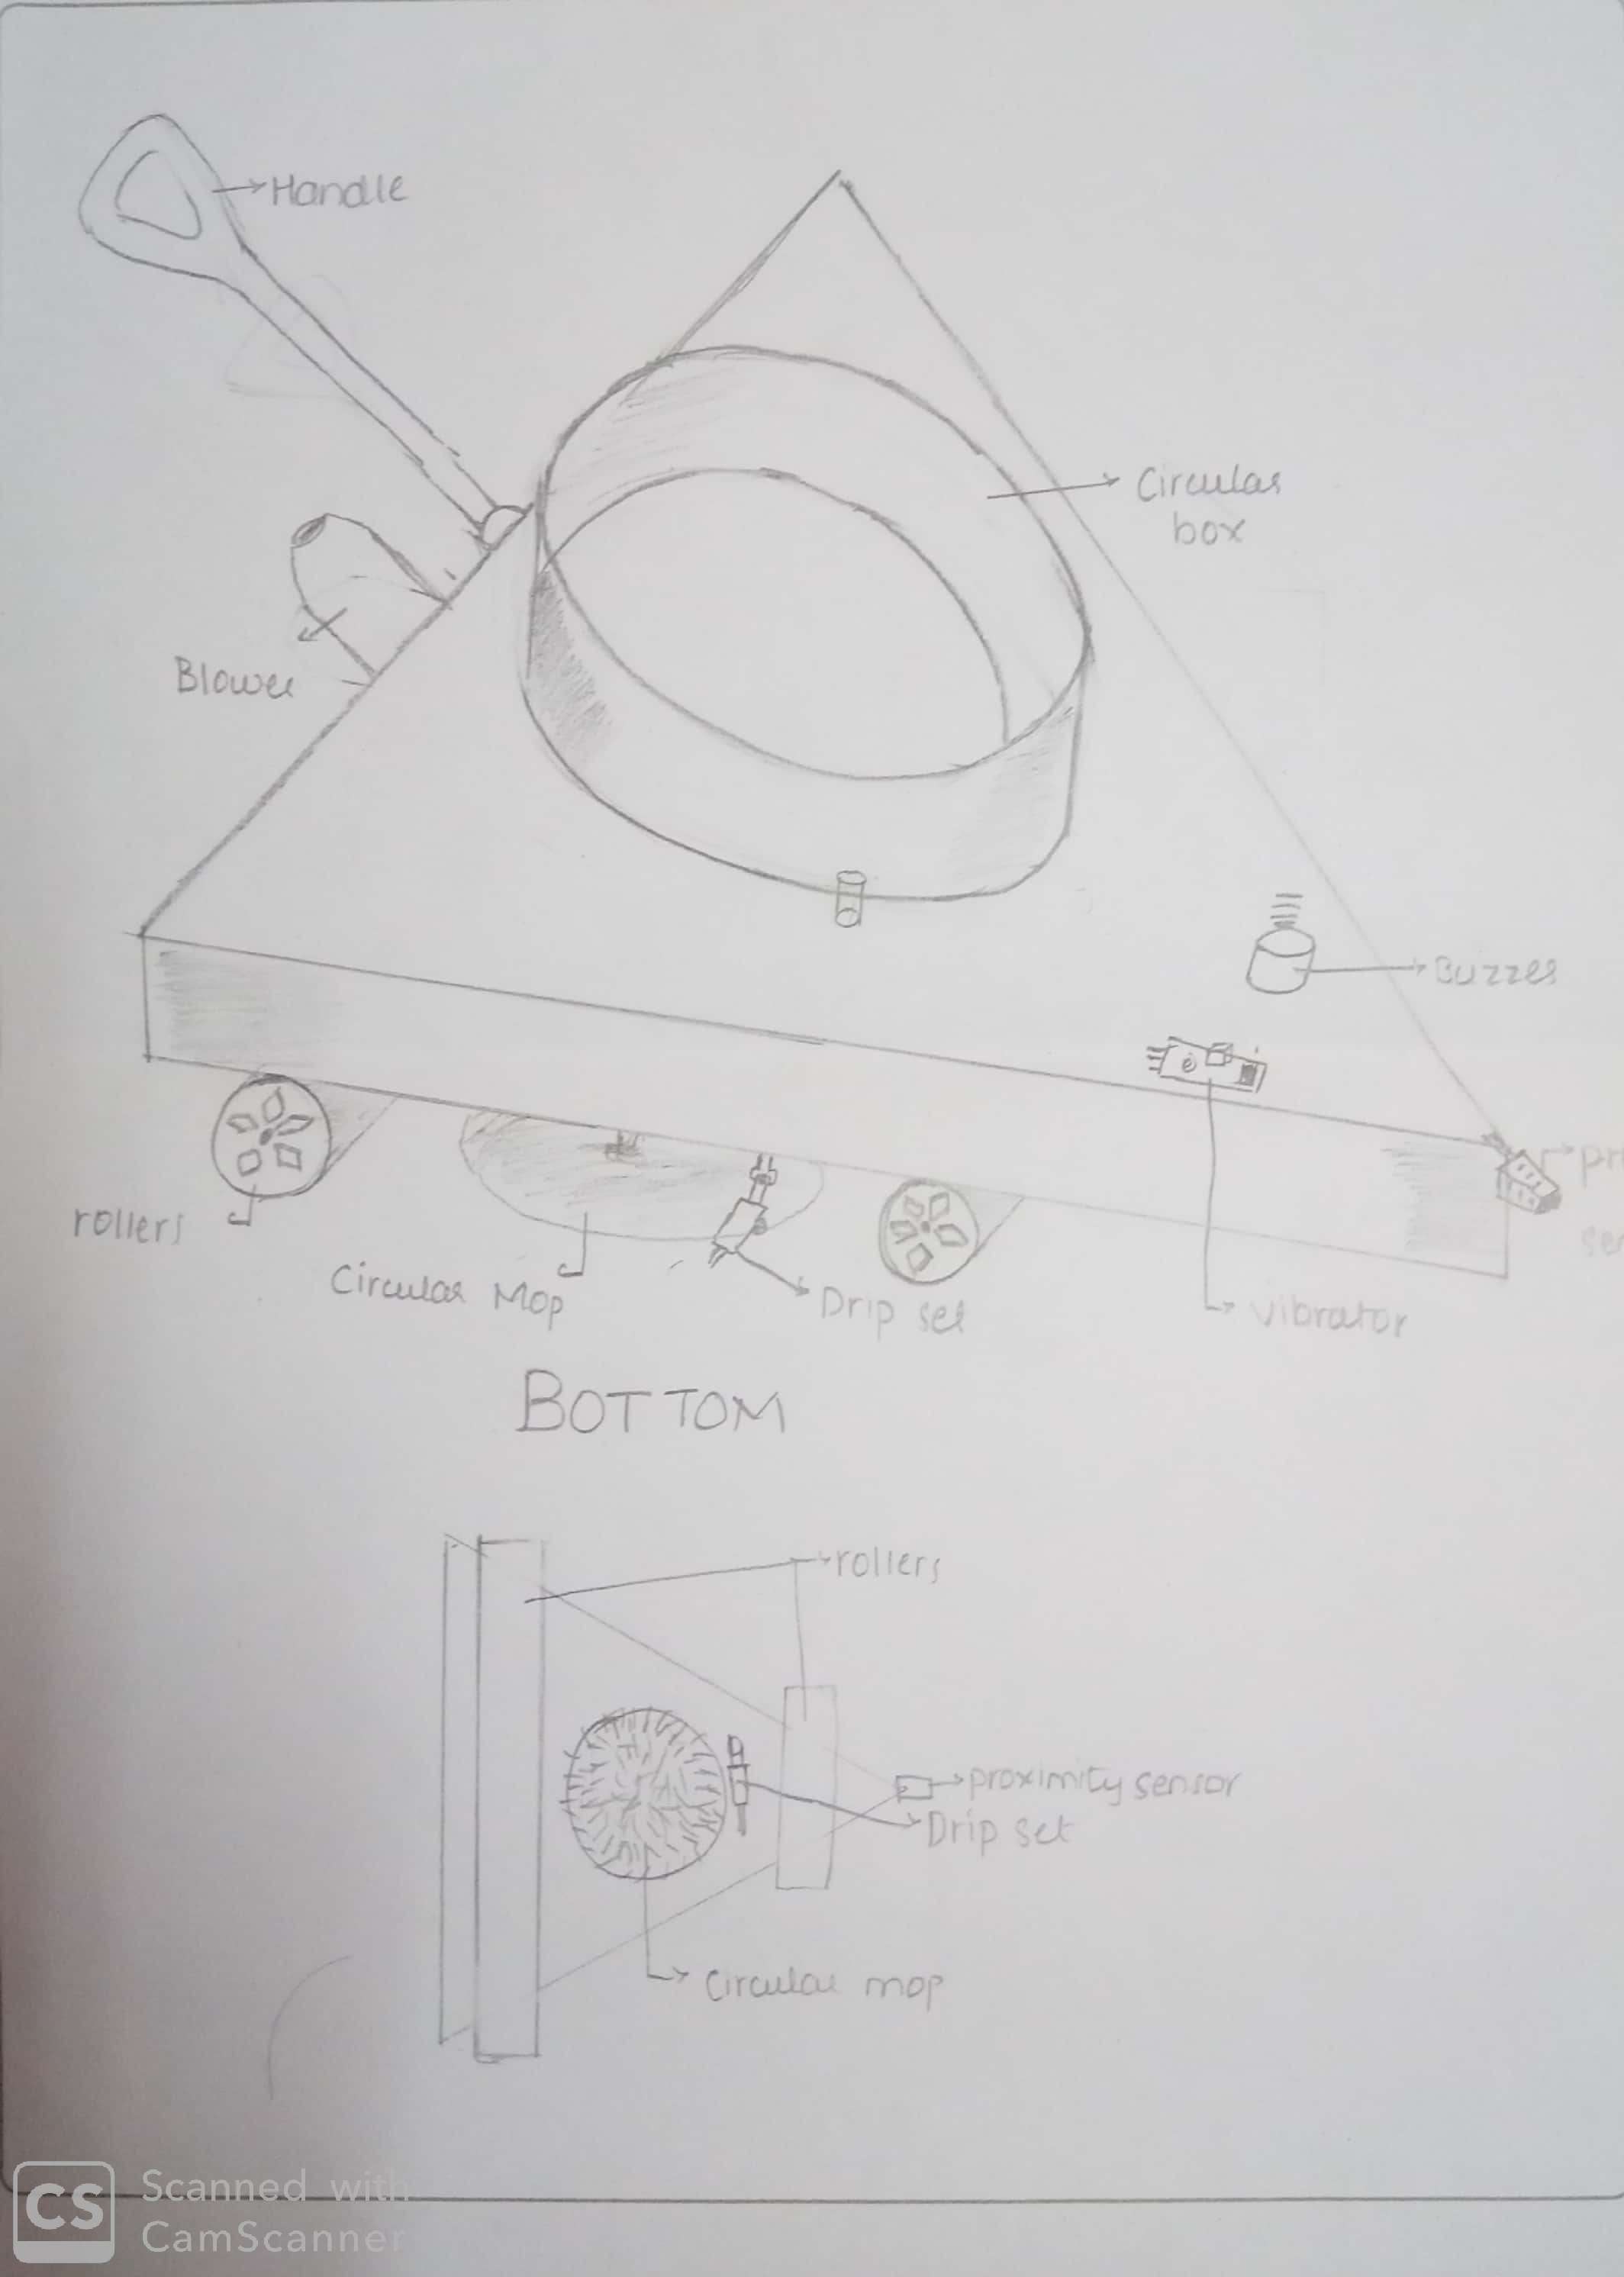 Handle
Circular
box
Blower
Buzzer
rollers
Circular Mop
Drip set
vibrator
BOTTOM
rollers
proximity sensor
Drip set
Circular mop
CS
Scanned with
CamScanner